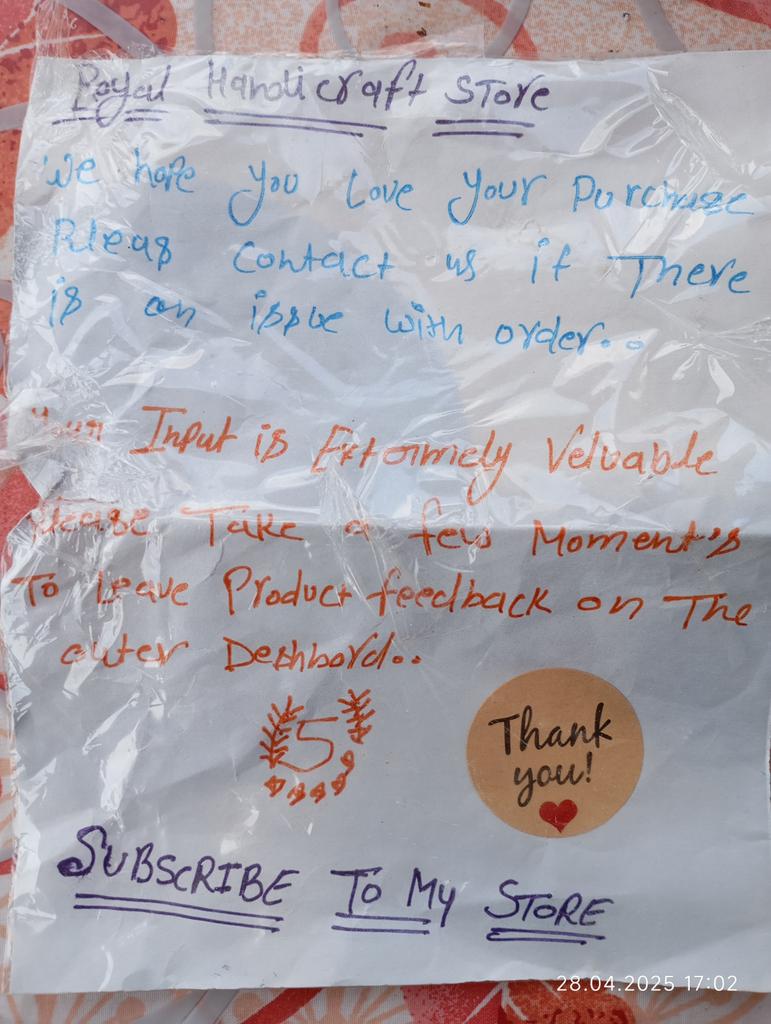 Royal Handicraft STore
We hope you Love your Purchase
Pleas contact us if There
is an issue with order...
Your Input is Extormely Veluable
Please Take a few Moment's
To Leave Product feedback on The
outer Deshbord..
5
Thank
you!
SUBSCRIBE To My STORE
28.04.2025 17:02